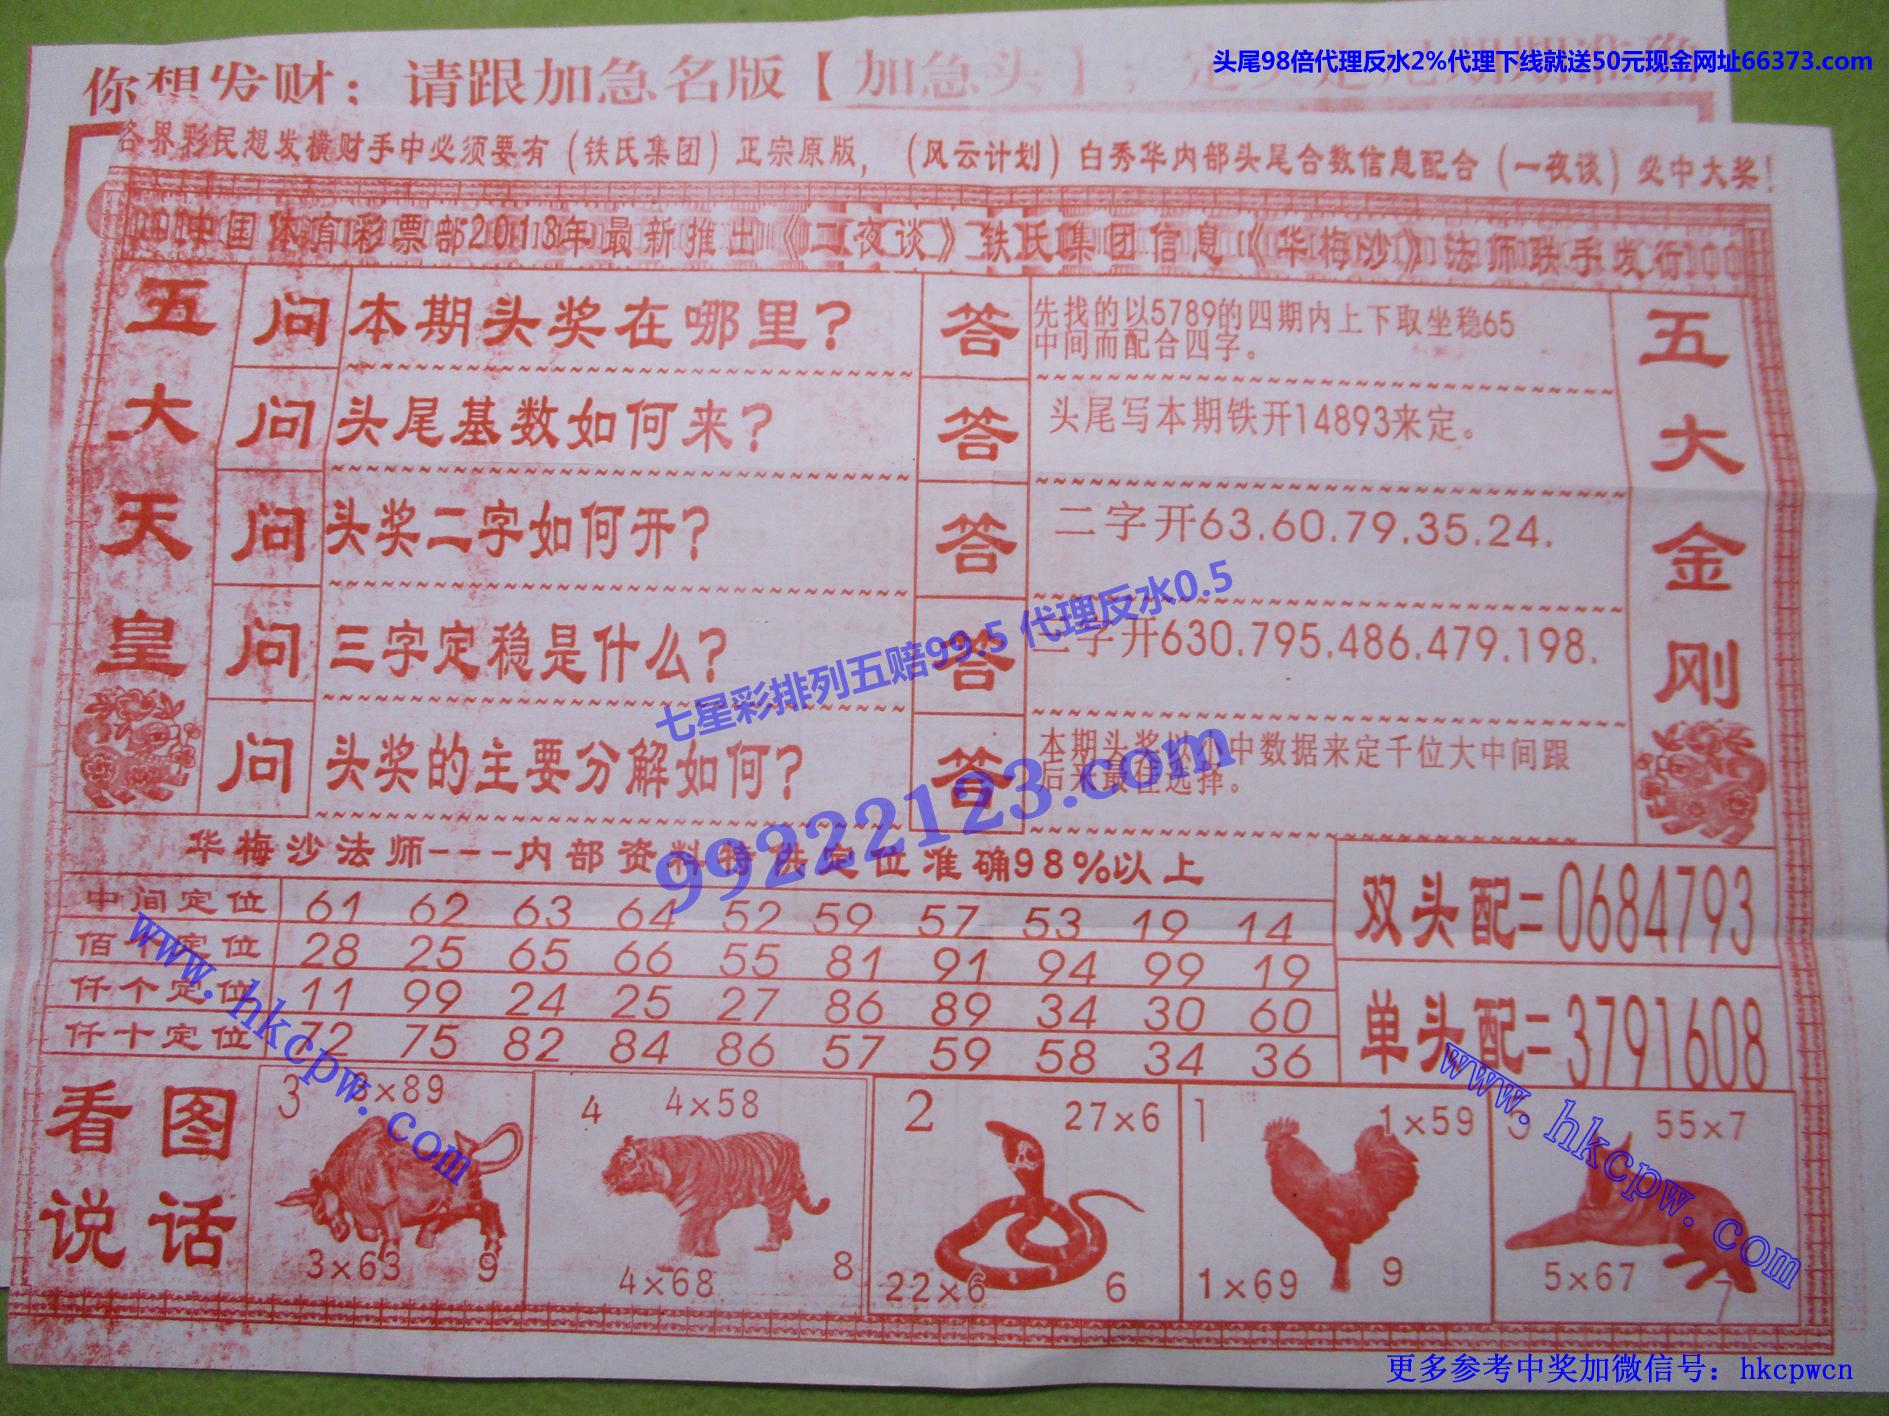 头尾98倍代理反水2%代理下线就送50元现金网址66373.com
你想发财：请跟加急名版【加急头】；定头定尾期期准确
各界彩民想发横财手中必须要有（铁氏集团）正宗原版，（风云计划）白秀华内部头尾合数信息配合（一夜谈）必中大奖！
中国体育彩票部2013年最新推出《一夜谈》铁氏集团信息《华梅沙》法师联手发行
五大天皇
问 本期头奖在哪里？
答 先找的以5789的四期内上下取坐稳65
中间而配合四字。
问 头尾基数如何来？
答 头尾写本期铁开14893来定。
问 头奖二字如何开？
答 二字开63.60.79.35.24.
问 三字定稳是什么？
答 三字开630.795.486.479.198.
问 头奖的主要分解如何？
答 本期头奖以小中数据来定千位大中间跟
后来最佳选择。
五大金刚
七星彩排列五赔99.5 代理反水0.5
99222123.com
华梅沙法师---内部资料特供定位准确98%以上
中间定位 61 62 63 64 52 59 57 53 19 14
佰个定位 28 25 65 66 55 81 91 94 99 19
仟个定位 11 99 24 25 27 86 89 34 30 60
仟十定位 72 75 82 84 86 57 59 58 34 36
双头配=0684793
单头配=3791608
www.hkcpw.com
www.hkcpw.com
看图说话
3 3×89
3×63 9
4 4×58
4×68 8
2 27×6
22×6 6
1 1×59
1×69 9
5 55×7
5×67 7
更多参考中奖加微信号：hkcpwcn